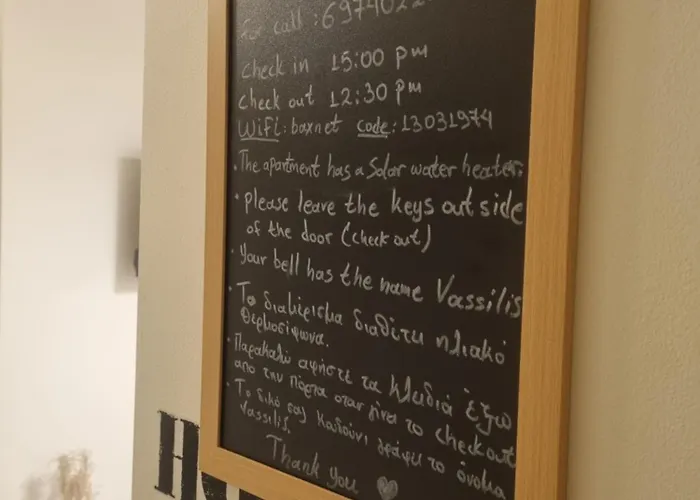 For call : 6974022
Check in 15:00 pm
Check out 12:30 pm
WiFi: baxnet code: 13031974
• The apartment has a Solar water heater.
• please leave the keys outside
of the door (check out)
• Your bell has the name Vassilis
• Το διαμέρισμα διαθέτει ηλιακό
θερμοσίφωνα.
• Παρακαλώ αφήστε τα κλειδιά έξω
απο την πόρτα οταν γίνει το checkout
• Το δικό σας κουδούνι γράφει το όνομα
Vassilis.
Thank you ♥
H